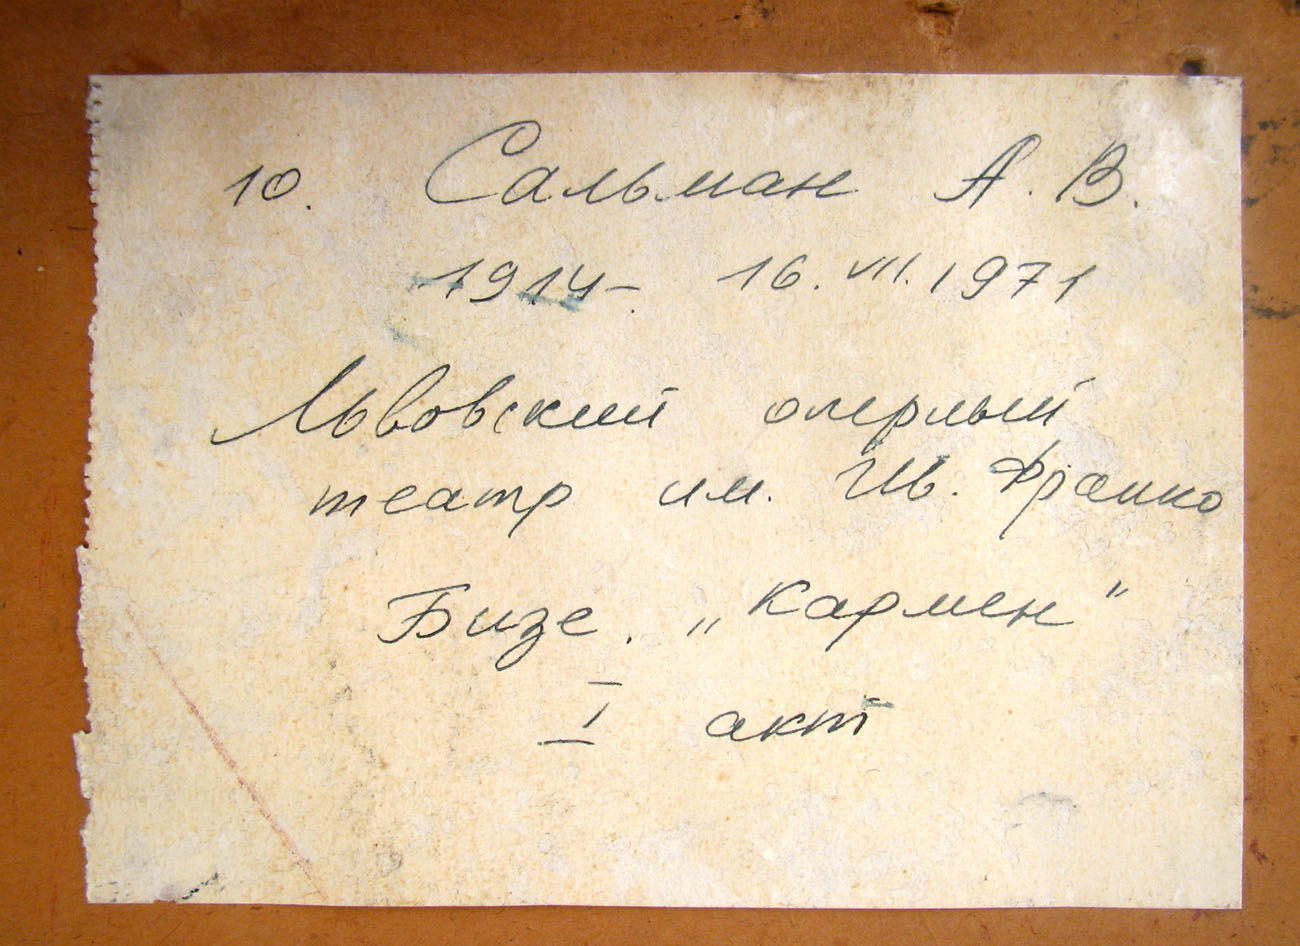 10. Сальман А. В.
1914- 16. VII. 1971
Львовский оперный
театр им. Ив. Франко
Бизе. „Кармен"
I акт